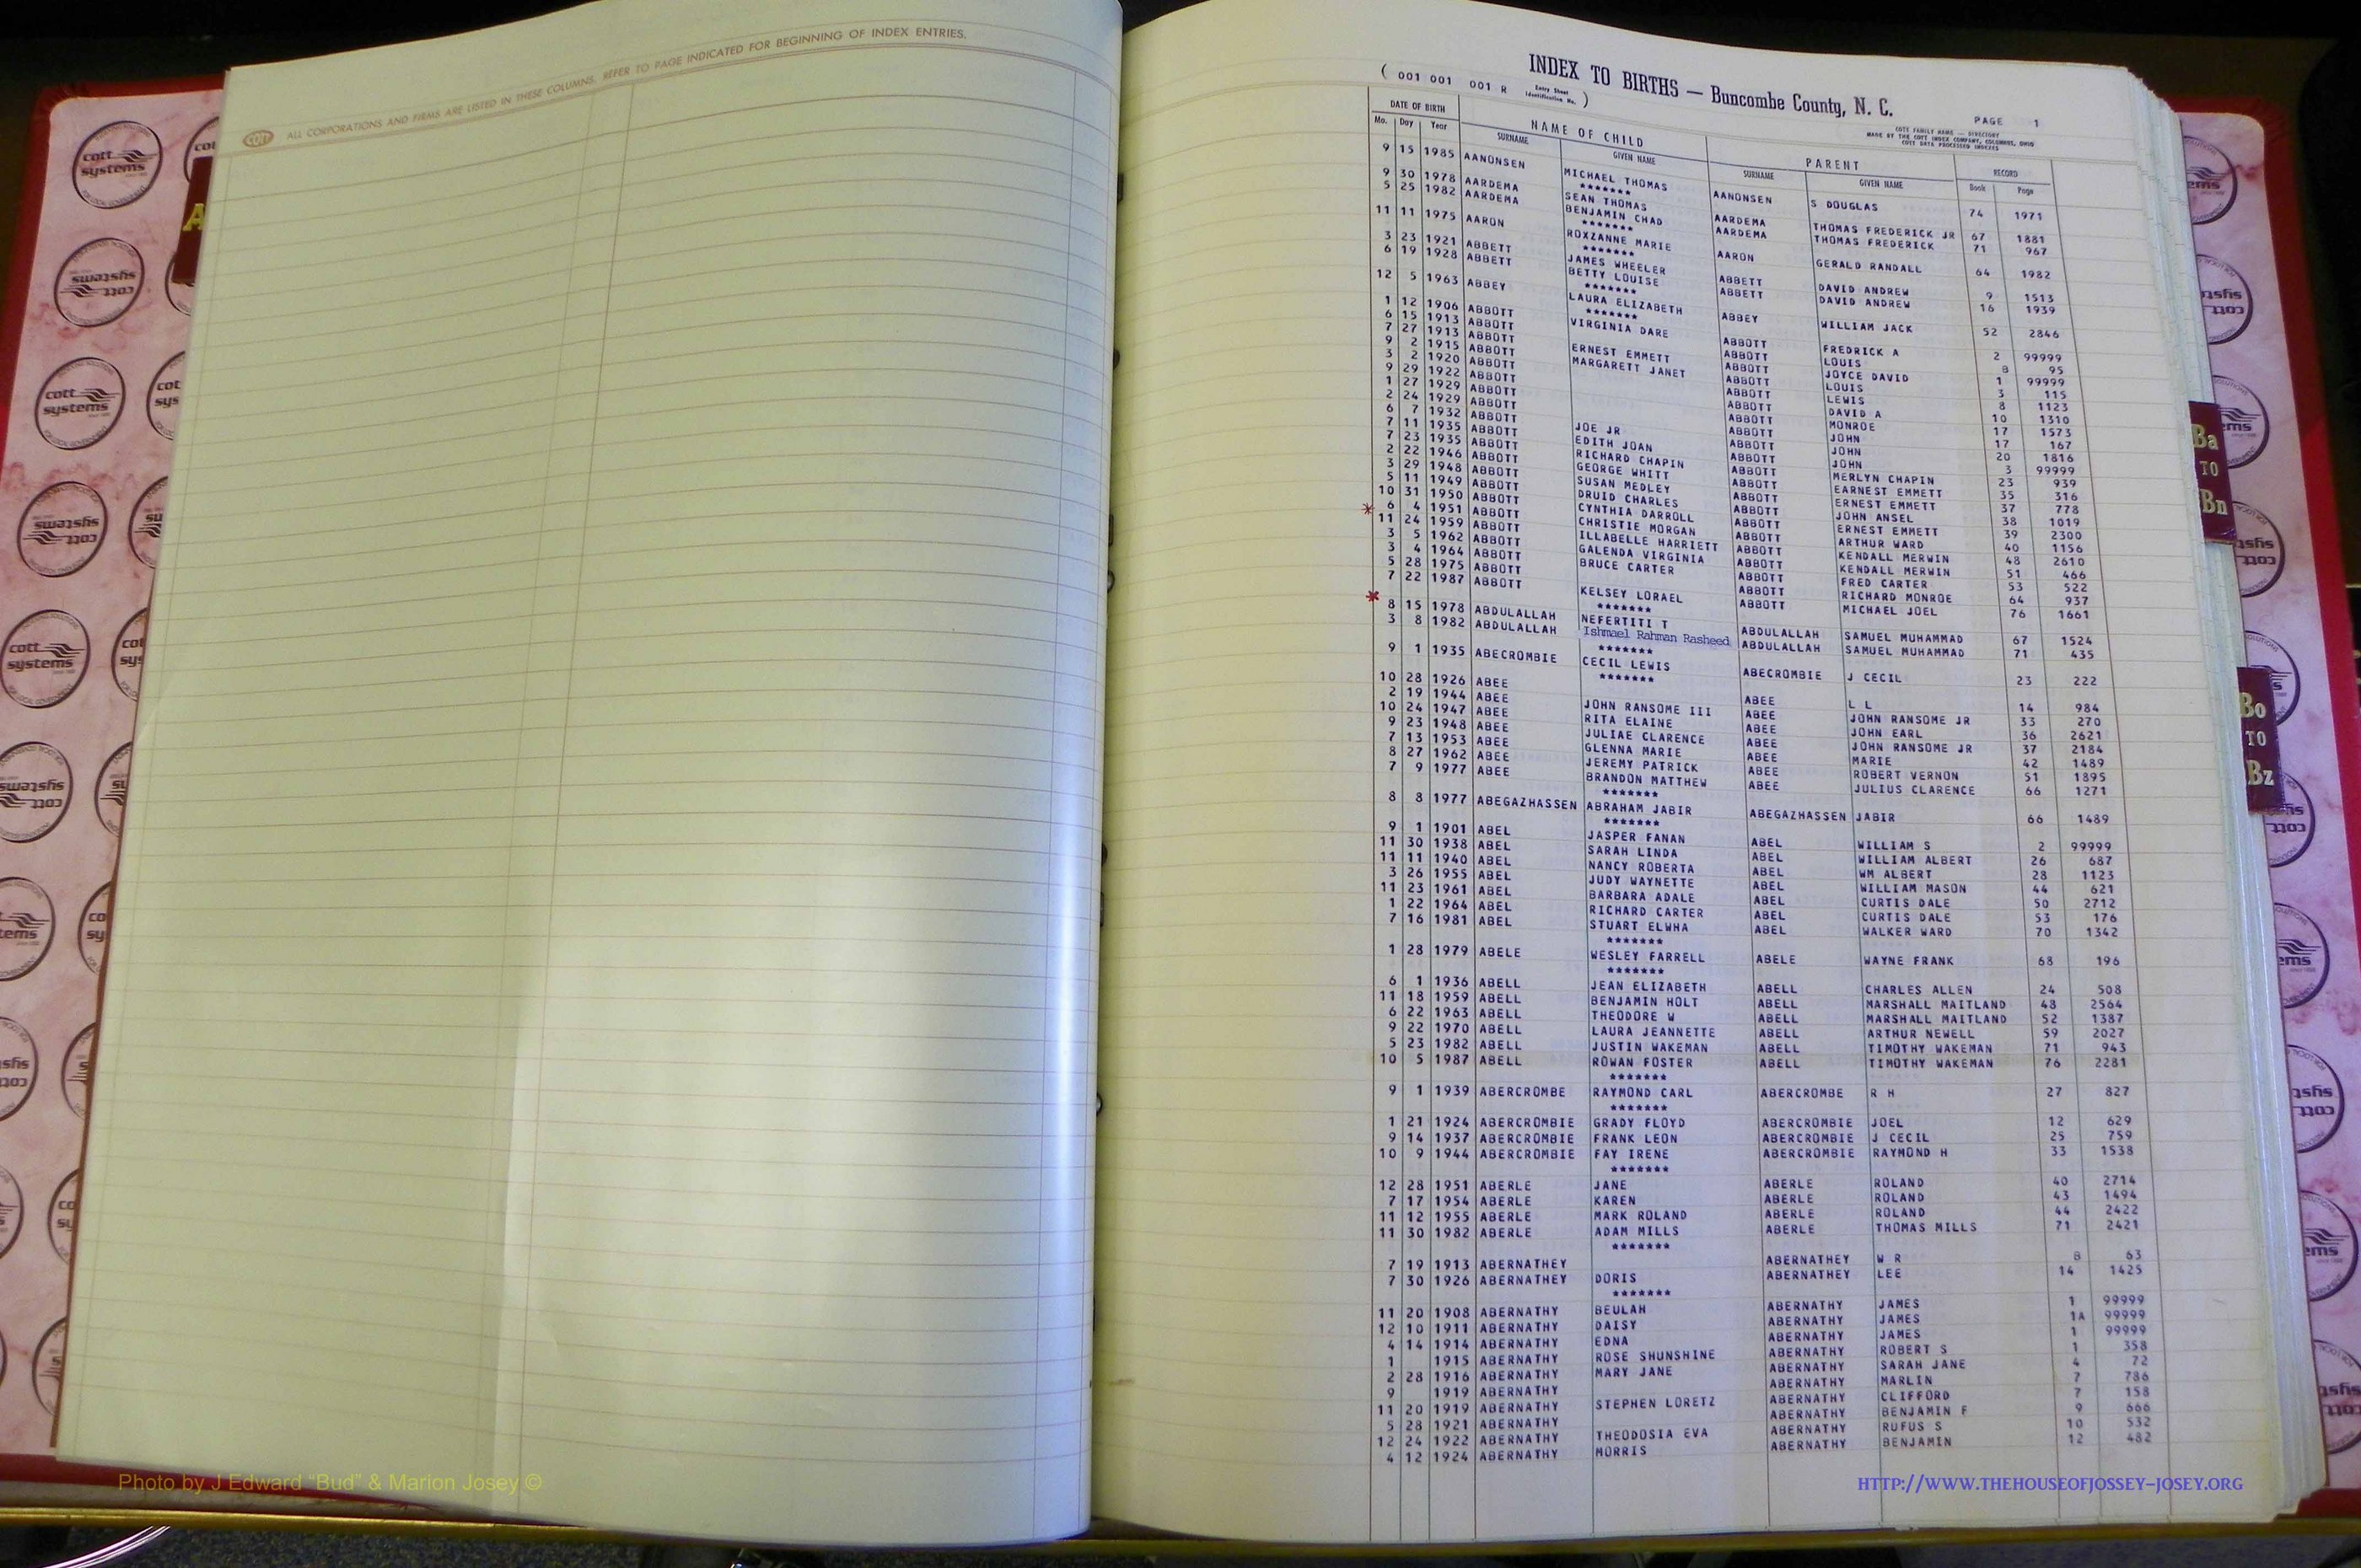 COTT ALL CORPORATIONS AND FIRMS ARE LISTED IN THESE COLUMNS. REFER TO PAGE INDICATED FOR BEGINNING OF INDEX ENTRIES.
INDEX TO BIRTHS — Buncombe County, N. C.
( 001 001 001 R Entry Sheet Identification No. )
PAGE 1
COTT FAMILY NAME — DIRECTORY
MADE BY THE COTT INDEX COMPANY, COLUMBUS, OHIO
COTT DATA PROCESSED INDEXES
DATE OF BIRTH NAME OF CHILD PARENT RECORD
Mo. Day Year SURNAME GIVEN NAME SURNAME GIVEN NAME Book Page
9 15 1985 AANONSEN MICHAEL THOMAS AANONSEN S DOUGLAS 74 1971
*******
9 30 1978 AARDEMA SEAN THOMAS AARDEMA THOMAS FREDERICK JR 67 1881
5 25 1982 AARDEMA BENJAMIN CHAD AARDEMA THOMAS FREDERICK 71 967
*******
11 11 1975 AARON ROXZANNE MARIE AARON GERALD RANDALL 64 1982
*******
3 23 1921 ABBETT JAMES WHEELER ABBETT DAVID ANDREW 9 1513
6 19 1928 ABBETT BETTY LOUISE ABBETT DAVID ANDREW 16 1939
*******
12 5 1963 ABBEY LAURA ELIZABETH ABBEY WILLIAM JACK 52 2846
*******
1 12 1906 ABBOTT VIRGINIA DARE ABBOTT FREDRICK A 2 99999
6 15 1913 ABBOTT ABBOTT LOUIS 8 95
7 27 1913 ABBOTT ERNEST EMMETT ABBOTT JOYCE DAVID 1 99999
9 2 1915 ABBOTT MARGARETT JANET ABBOTT LOUIS 3 115
3 2 1920 ABBOTT ABBOTT LEWIS 8 1123
9 29 1922 ABBOTT ABBOTT DAVID A 10 1310
1 27 1929 ABBOTT ABBOTT MONROE 17 1573
2 24 1929 ABBOTT ABBOTT JOHN 17 167
6 7 1932 ABBOTT JOE JR ABBOTT JOHN 20 1816
7 11 1935 ABBOTT EDITH JOAN ABBOTT JOHN 3 99999
7 23 1935 ABBOTT RICHARD CHAPIN ABBOTT MERLYN CHAPIN 23 939
2 22 1946 ABBOTT GEORGE WHITT ABBOTT EARNEST EMMETT 35 316
3 29 1948 ABBOTT SUSAN MEDLEY ABBOTT ERNEST EMMETT 37 778
5 11 1949 ABBOTT DRUID CHARLES ABBOTT JOHN ANSEL 38 1019
10 31 1950 ABBOTT CYNTHIA DARROLL ABBOTT ERNEST EMMETT 39 2300
* 6 4 1951 ABBOTT CHRISTIE MORGAN ABBOTT ARTHUR WARD 40 1156
11 24 1959 ABBOTT ILLABELLE HARRIETT ABBOTT KENDALL MERWIN 48 2610
3 5 1962 ABBOTT GALENDA VIRGINIA ABBOTT KENDALL MERWIN 51 466
3 4 1964 ABBOTT BRUCE CARTER ABBOTT FRED CARTER 53 522
5 28 1975 ABBOTT ABBOTT RICHARD MONROE 64 937
7 22 1987 ABBOTT KELSEY LORAEL ABBOTT MICHAEL JOEL 76 1661
* *******
8 15 1978 ABDULALLAH NEFERTITI T ABDULALLAH SAMUEL MUHAMMAD 67 1524
3 8 1982 ABDULALLAH Ishmael Rahman Rasheed ABDULALLAH SAMUEL MUHAMMAD 71 435
*******
9 1 1935 ABECROMBIE CECIL LEWIS ABECROMBIE J CECIL 23 222
*******
10 28 1926 ABEE ABEE L L 14 984
2 19 1944 ABEE JOHN RANSOME III ABEE JOHN RANSOME JR 33 270
10 24 1947 ABEE RITA ELAINE ABEE JOHN EARL 36 2621
9 23 1948 ABEE JULIAE CLARENCE ABEE JOHN RANSOME JR 37 2184
7 13 1953 ABEE GLENNA MARIE ABEE MARIE 42 1489
8 27 1962 ABEE JEREMY PATRICK ABEE ROBERT VERNON 51 1895
7 9 1977 ABEE BRANDON MATTHEW ABEE JULIUS CLARENCE 66 1271
*******
8 8 1977 ABEGAZHASSEN ABRAHAM JABIR ABEGAZHASSEN JABIR 66 1489
*******
9 1 1901 ABEL JASPER FANAN ABEL WILLIAM S 2 99999
11 30 1938 ABEL SARAH LINDA ABEL WILLIAM ALBERT 26 687
11 11 1940 ABEL NANCY ROBERTA ABEL WM ALBERT 28 1123
3 26 1955 ABEL JUDY WAYNETTE ABEL WILLIAM MASON 44 621
11 23 1961 ABEL BARBARA ADALE ABEL CURTIS DALE 50 2712
1 22 1964 ABEL RICHARD CARTER ABEL CURTIS DALE 53 176
7 16 1981 ABEL STUART ELWHA ABEL WALKER WARD 70 1342
*******
1 28 1979 ABELE WESLEY FARRELL ABELE WAYNE FRANK 68 196
*******
6 1 1936 ABELL JEAN ELIZABETH ABELL CHARLES ALLEN 24 508
11 18 1959 ABELL BENJAMIN HOLT ABELL MARSHALL MAITLAND 48 2564
6 22 1963 ABELL THEODORE W ABELL MARSHALL MAITLAND 52 1387
9 22 1970 ABELL LAURA JEANNETTE ABELL ARTHUR NEWELL 59 2027
5 23 1982 ABELL JUSTIN WAKEMAN ABELL TIMOTHY WAKEMAN 71 943
10 5 1987 ABELL ROWAN FOSTER ABELL TIMOTHY WAKEMAN 76 2281
*******
9 1 1939 ABERCROMBE RAYMOND CARL ABERCROMBE R H 27 827
*******
1 21 1924 ABERCROMBIE GRADY FLOYD ABERCROMBIE JOEL 12 629
9 14 1937 ABERCROMBIE FRANK LEON ABERCROMBIE J CECIL 25 759
10 9 1944 ABERCROMBIE FAY IRENE ABERCROMBIE RAYMOND H 33 1538
*******
12 28 1951 ABERLE JANE ABERLE ROLAND 40 2714
7 17 1954 ABERLE KAREN ABERLE ROLAND 43 1494
11 12 1955 ABERLE MARK ROLAND ABERLE ROLAND 44 2422
11 30 1982 ABERLE ADAM MILLS ABERLE THOMAS MILLS 71 2421
*******
7 19 1913 ABERNATHEY ABERNATHEY W R 8 63
7 30 1926 ABERNATHEY DORIS ABERNATHEY LEE 14 1425
*******
11 20 1908 ABERNATHY BEULAH ABERNATHY JAMES 1 99999
12 10 1911 ABERNATHY DAISY ABERNATHY JAMES 1A 99999
4 14 1914 ABERNATHY EDNA ABERNATHY JAMES 1 99999
1 1915 ABERNATHY ROSE SHUNSHINE ABERNATHY ROBERT S 1 358
2 28 1916 ABERNATHY MARY JANE ABERNATHY SARAH JANE 4 72
9 1919 ABERNATHY ABERNATHY MARLIN 7 786
11 20 1919 ABERNATHY STEPHEN LORETZ ABERNATHY CLIFFORD 7 158
5 28 1921 ABERNATHY ABERNATHY BENJAMIN F 9 666
12 24 1922 ABERNATHY THEODOSIA EVA ABERNATHY RUFUS S 10 532
4 12 1924 ABERNATHY MORRIS ABERNATHY BENJAMIN 12 482
Ba TO Bn
Bo TO Bz
cott systems
Photo by J Edward “Bud” & Marion Josey ©
HTTP://WWW.THEHOUSEOFJOSSEY-JOSEY.ORG